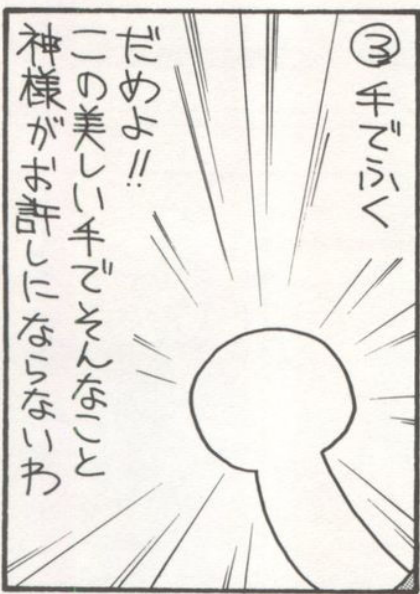 ③手でふく
だめよ!!
この美しい手でそんなこと
神様がお許しにならないわ